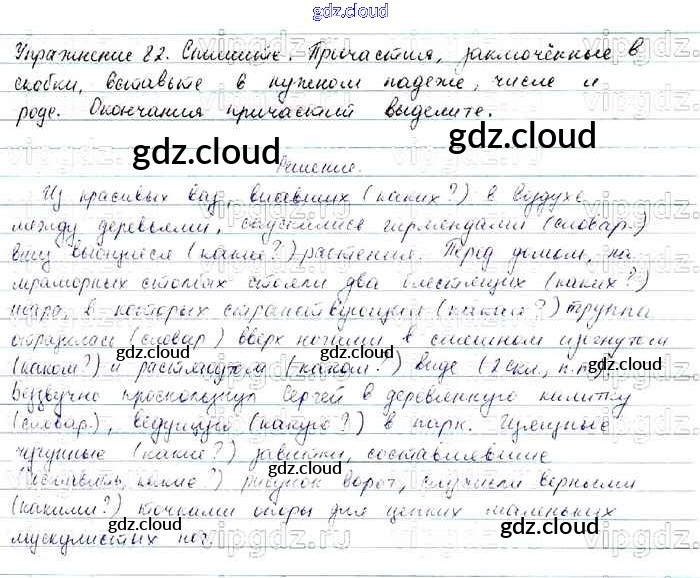 gdz.cloud
Упражнение 82. Спишите. Причастия, заключённые в
скобки, вставьте в нужном падеже, числе и
роде. Окончания причастий выделите.
gdz.cloud gdz.cloud
Решение.
Из красивых ваз, висевших (каких?) в воздухе
между деревьями, спускались гирляндами (словар.)
вниз вьющиеся (какие?) растения. Перед домом, на
мраморных столбах стояли два блестящих (каких?)
шара, в которых странствующая (какая?) труппа
отразилась (словар) вверх ногами, в смешном изогнутом
gdz.cloud gdz.cloud gdz.cloud
(каком?) и растянутом (каком?) виде (2 скл., п.п.).
Беззвучно проскользнул Сергей в деревянную калитку
(словар.), ведущую (какую?) в парк.
gdz.cloud gdz.cloud
чугунные (какие?) завитки, составлявшие
gdz.cloud
(составлять, какие?) рисунок ворот, служили верными
(какими?) точками опоры для цепких маленьких
gdz.cloud gdz.cloud gdz.cloud
мускулистых ног.